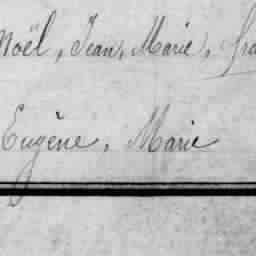 Noël, Jean, Marie,
Eugène, Marie